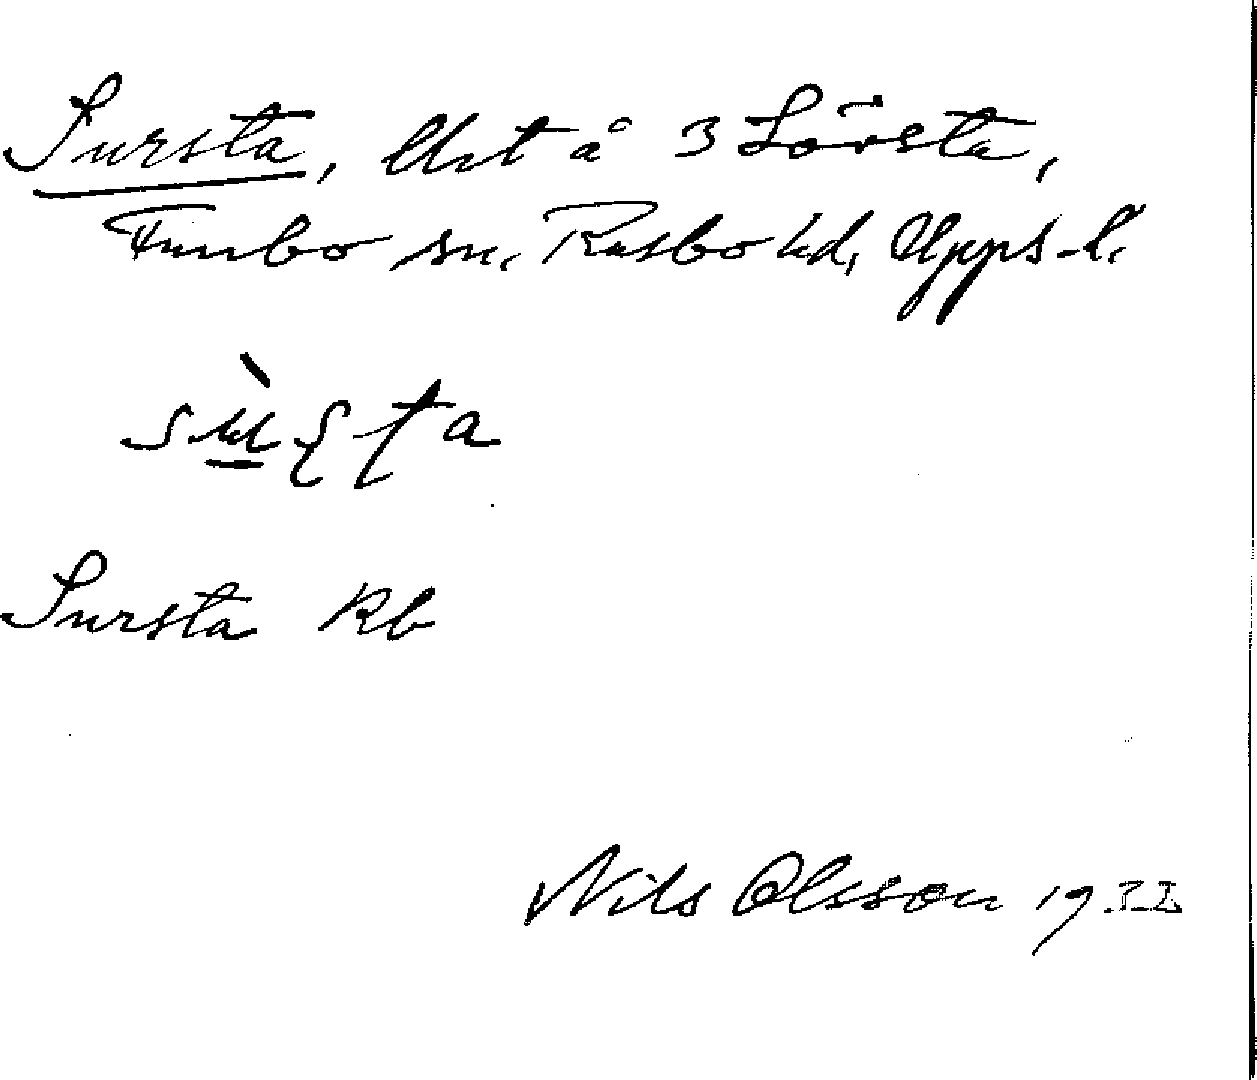 Sursta, Utet å 3 Lövsta,
Funbo sn. Rasbo hd, Upps. l.
Sursta Rb
Nils Olsson 1932